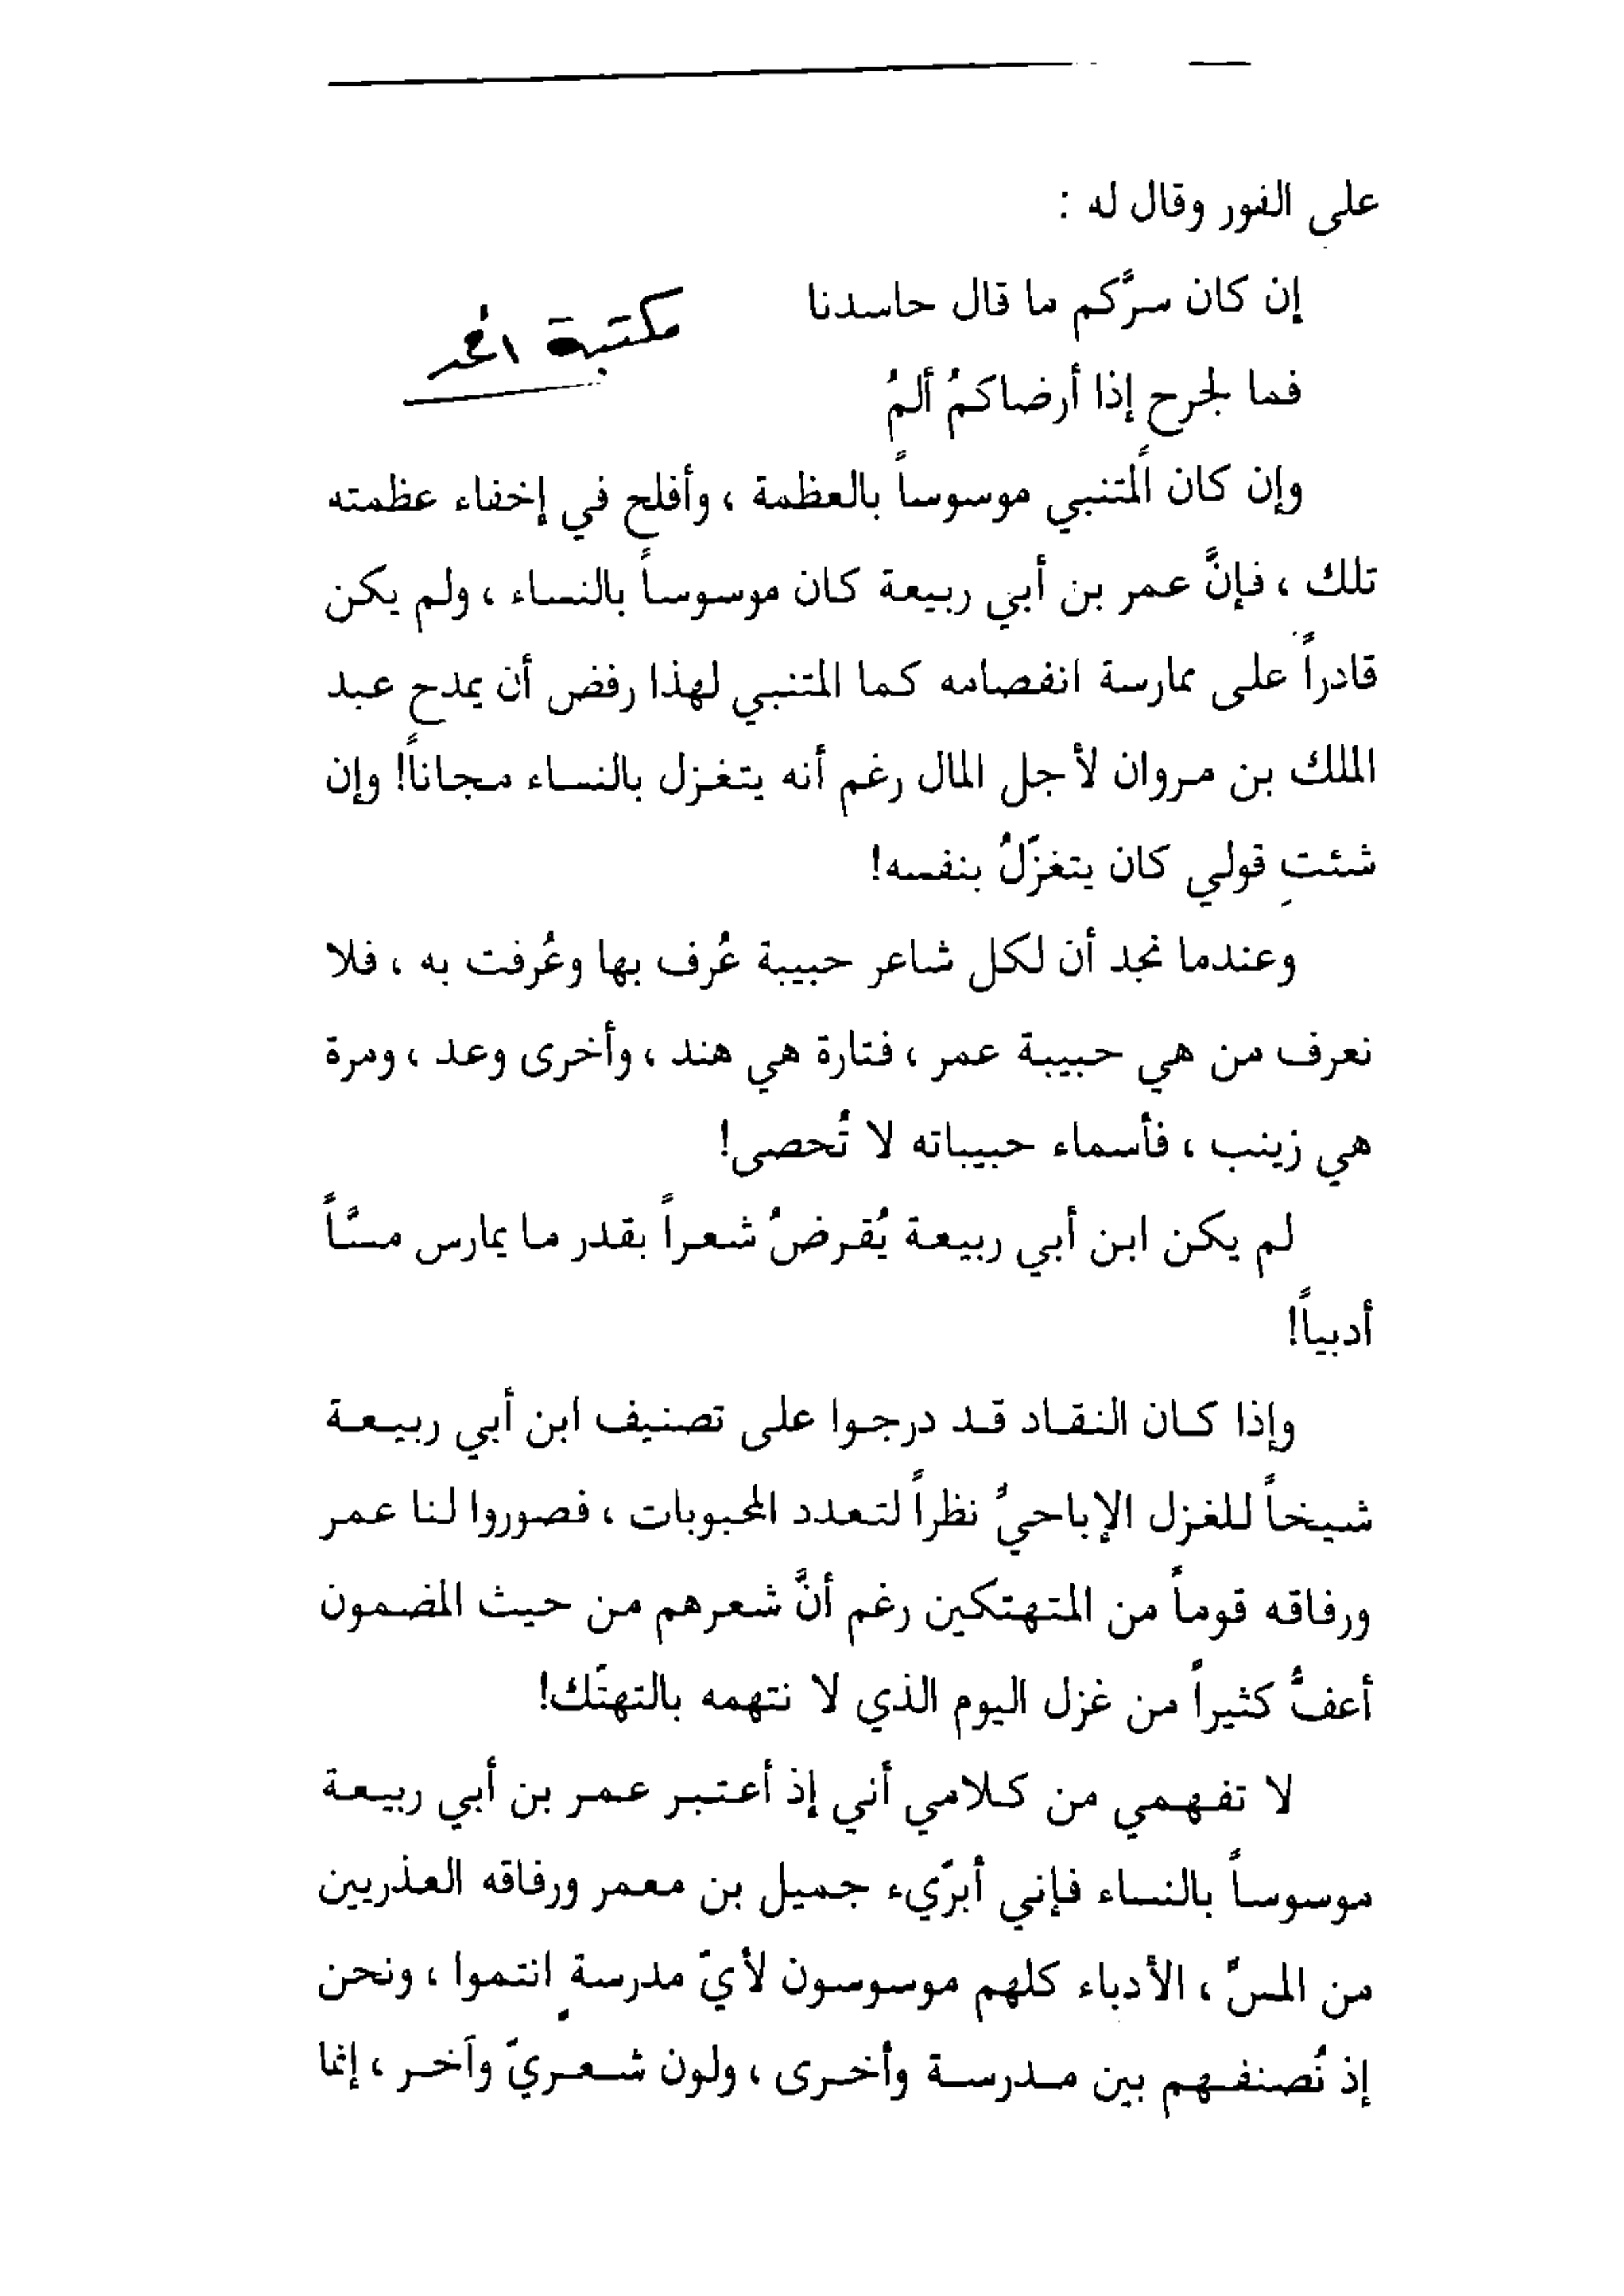 على الفور وقال له :
إن كان سرَّكم ما قال حاسدنا
مكتبة
فما لجرح إذا أرضاكمُ ألمُ
وإن كان اًلمتنبي موسوساً بالعظمة ، وأفلح في إخفاء عظمته
تلك ، فإنَّ عمر بن أبي ربيعة كان موسوساً بالنساء ، ولم يكن
قادراً على ممارسة انفصامه كما المتنبي لهذا رفض أن يمدح عبد
الملك بن مروان لأجل المال رغم أنه يتغزل بالنساء مجاناً! وإن
شئتِ قولي كان يتغزَلُ بنفسه!
وعندما نجد أن لكل شاعر حبيبة عُرف بها وعُرفت به ، فلا
نعرف من هي حبيبة عمر ، فتارة هي هند ، وأخرى وعد ، ومرة
هي زينب ، فأسماء حبيباته لا تُحصى!
لم يكن ابن أبي ربيعة يُقرضُ شعراً بقدر ما يمارس مسَّاً
أدبياً!
وإذا كان النقاد قد درجوا على تصنيف ابن أبي ربيعة
شيخاً للغزل الإباحيَّ نظراً لتعدد المحبوبات ، فصوروا لنا عمر
ورفاقه قوماً من المتهتكين رغم أنَّ شعرهم من حيث المضمون
أعفُّ كثيراً من غزل اليوم الذي لا نتهمه بالتهتَك!
لا تفهمي من كلامي أني إذ أعتبر عمر بن أبي ربيعة
موسوساً بالنساء فإني أبرَيء جميل بن معمر ورفاقه العذريين
من المسَّ ، الأدباء كلهم موسوسون لأيَ مدرسةٍ انتموا ، ونحن
إذ نُصنفهم بين مدرسة وأخرى ، ولون شعريَ وآخر ، إنما